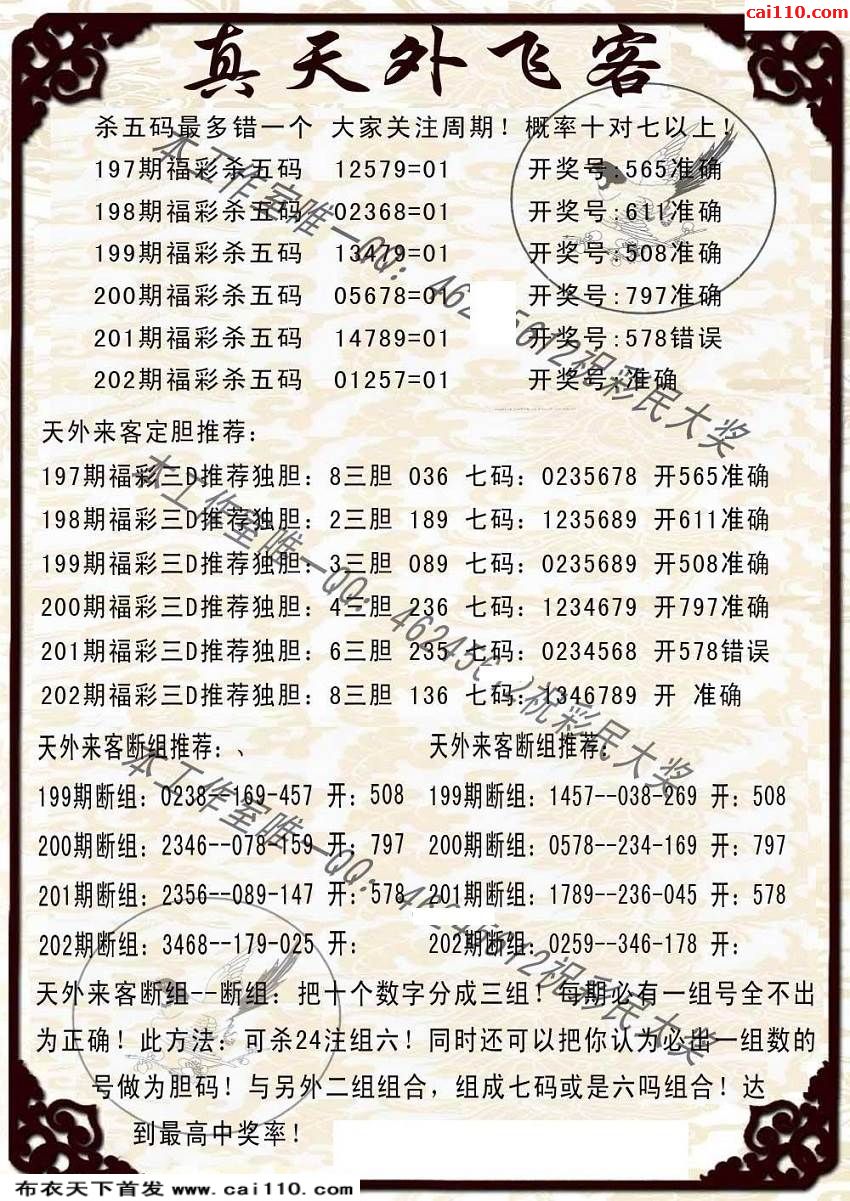 cai110.com
真天外飞客
杀五码最多错一个 大家关注周期！概率十对七以上！
197期福彩杀五码 12579=01 开奖号:565准确
198期福彩杀五码 02368=01 开奖号:611准确
199期福彩杀五码 13479=01 开奖号:508准确
200期福彩杀五码 05678=01 开奖号:797准确
201期福彩杀五码 14789=01 开奖号:578错误
202期福彩杀五码 01257=01 开奖号:准确
天外来客定胆推荐：
197期福彩三D推荐独胆：8三胆 036 七码：0235678 开565准确
198期福彩三D推荐独胆：2三胆 189 七码：1235689 开611准确
199期福彩三D推荐独胆：3三胆 089 七码：0235689 开508准确
200期福彩三D推荐独胆：4三胆 236 七码：1234679 开797准确
201期福彩三D推荐独胆：6三胆 235 七码：0234568 开578错误
202期福彩三D推荐独胆：8三胆 136 七码：1346789 开 准确
天外来客断组推荐：、 天外来客断组推荐：
199期断组：0238--169-457 开：508 199期断组：1457--038-269 开：508
200期断组：2346--078-159 开：797 200期断组：0578--234-169 开：797
201期断组：2356--089-147 开：578 201期断组：1789--236-045 开：578
202期断组：3468--179-025 开： 202期断组：0259--346-178 开：
天外来客断组--断组：把十个数字分成三组！每期必有一组号全不出
为正确！此方法：可杀24注组六！同时还可以把你认为必出一组数的
号做为胆码！与另外二组组合，组成七码或是六吗组合！达
到最高中奖率！
本工作室唯一QQ：祝彩民大奖
本工作室唯一QQ：祝彩民大奖
本工作室唯一QQ：祝彩民大奖
布衣天下首发 www.cai110.com